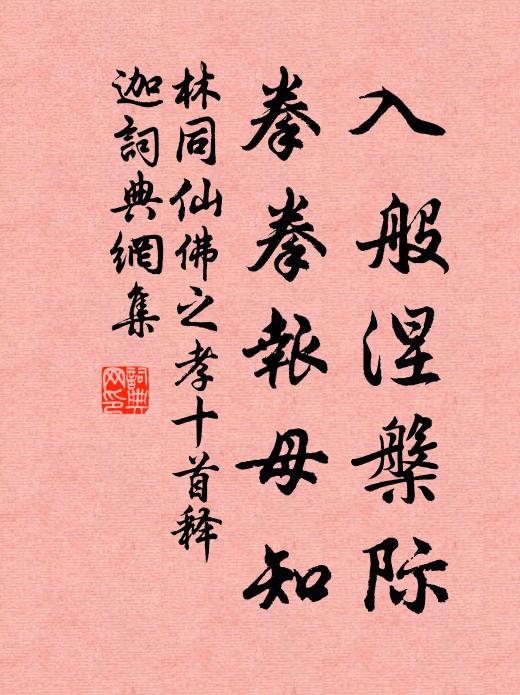 入般涅槃际
拳拳報母知
林同仙佛之孝十首释
迦詞典網集
詞典
网印